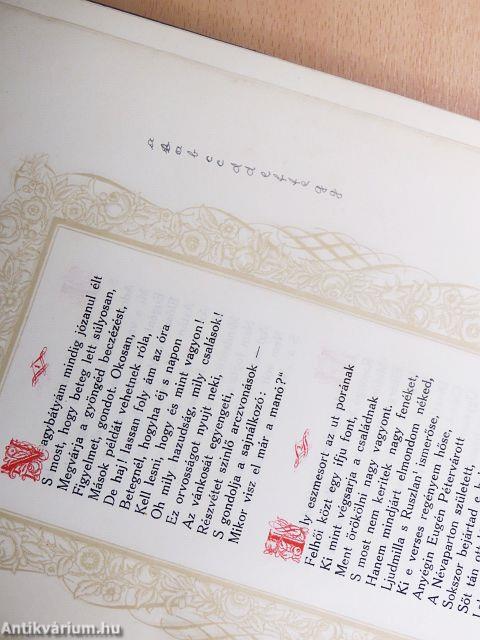 a b a b c c d d e f f e g g
I
Nagybátyám mindig józanul élt
S most, hogy beteg lett súlyosan,
Megvárja a gyöngéd beczézést,
Figyelmet, gondot. Okosan,
Mások példát vehetnek róla,
De haj! lassan foly ám az óra
Betegnél, hogyha éj s napon
Kell lesni, hogy és mint vagyon!
Oh mily hazudság, mily családok!
Ez orvosságot nyujt neki,
Az vánkosát egyengeti,
Részvétet színlő arczvonások —
S gondolja a sajnálkozó:
Mikor visz el már a manó?"
Ily eszmesort az ut porának
Felhői közt egy ifju font,
Ki mint végsarja a családnak
Ment örökölni nagy vagyont.
S most nem kerítek nagy feneket,
Hanem mindjárt elmondom néked,
Ljudmilla s Ruszlani ismerőse,
Ki e verses regényem hőse,
Anyégin Eugén Pétervárott
A Névaparton született,
Sokszor bejártad e
Sőt tán ott
Antikvárium.hu